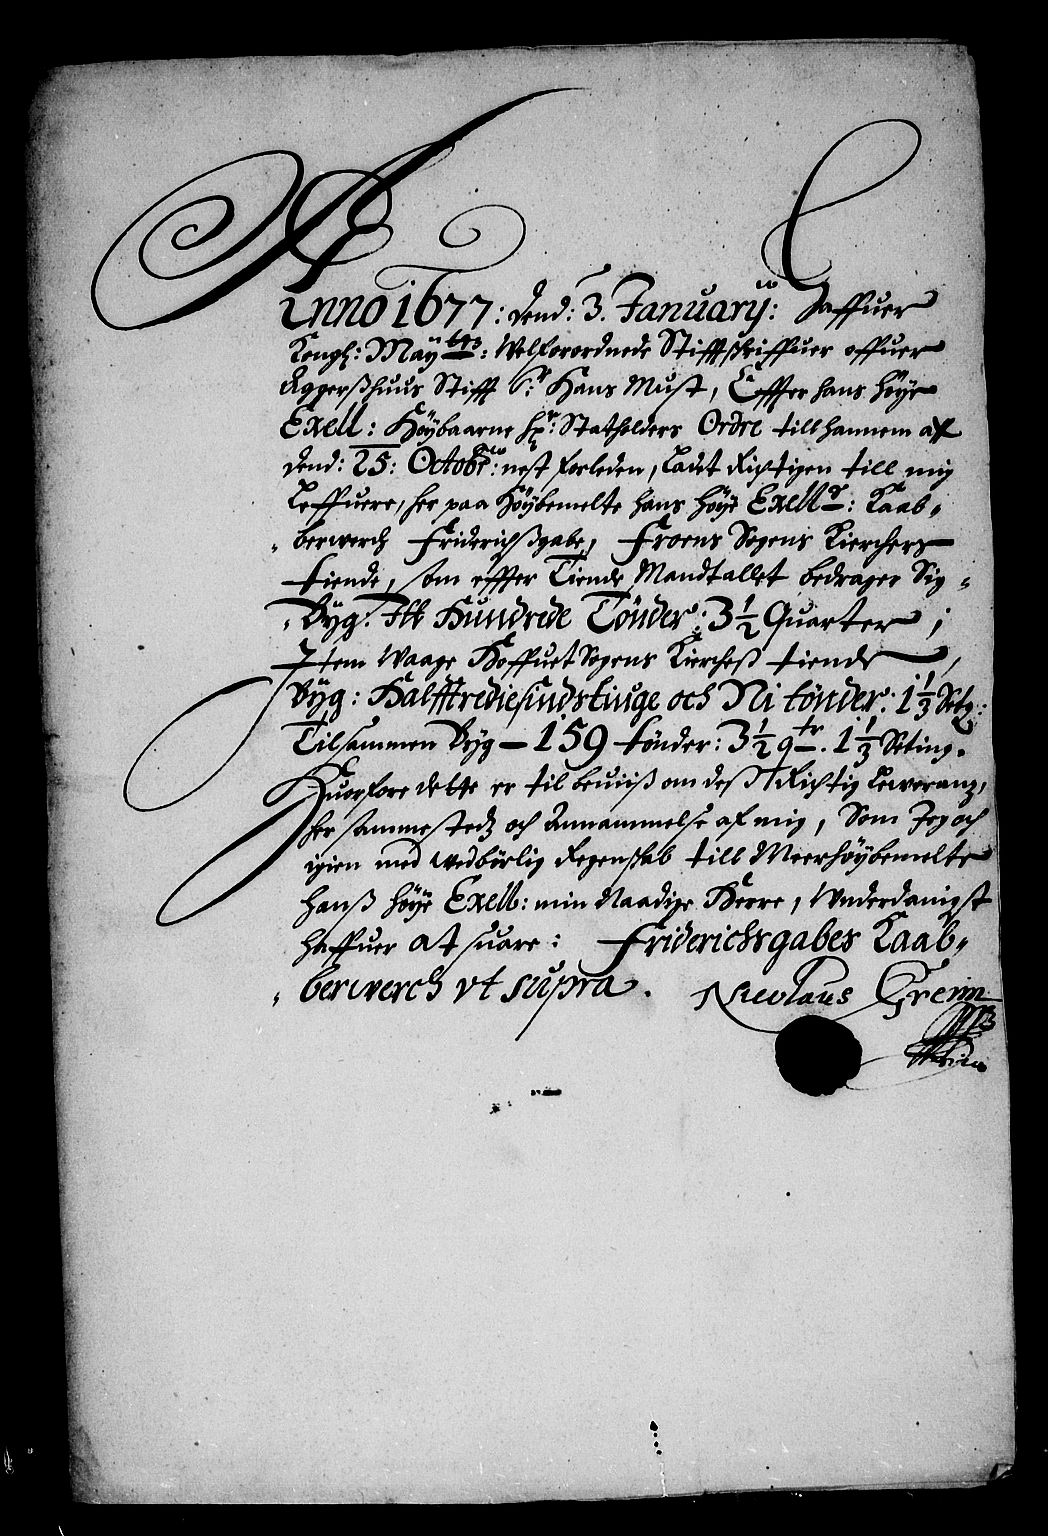 Anno 1677: dend: 3. January: haffuer
Kongl: Mayttz: Welforordnede Stifftschriffuer offuer
Aggerßhuus Stifft Sr: Hans Must, Effter hans høye
Exell: Høybaarne hr: Statholders Ordre till hannem af
dend: 25: Octobr: nest forleden, ladt Richtigen till mig
Leffuere, her paa Høybemelte hans høye Exellt: Kaab-
berwerch Friderichßgabe, Froens Sogens Kierchers
tiende, som effter Tiende Mandtallet bedrager Sig-
Byg: Itt Hundrede Tønder: 3½ Quarter;
Item Waage Hoffuet Sogens Kircheß tiende,
Byg: Halfftrediesindstiuge och Ni tønder: 1⅓ Setg:
Tilsammen Byg – 159 tønder: 3½ qtr. 1⅓ Seting.
Huorfore dette er til beuiiß om deß Richtig Leweranz,
her sammestedz och Annammelse af mig, Som Jeg och
igien med wedbørlig Regenskab till Meerhøybemelte
Hanß høye Exell: min Naadige Herre, Vnderdanigst
haffuer at suare: Friderichsgabes Kaab-
berwerch vt supra.
Nicolaus